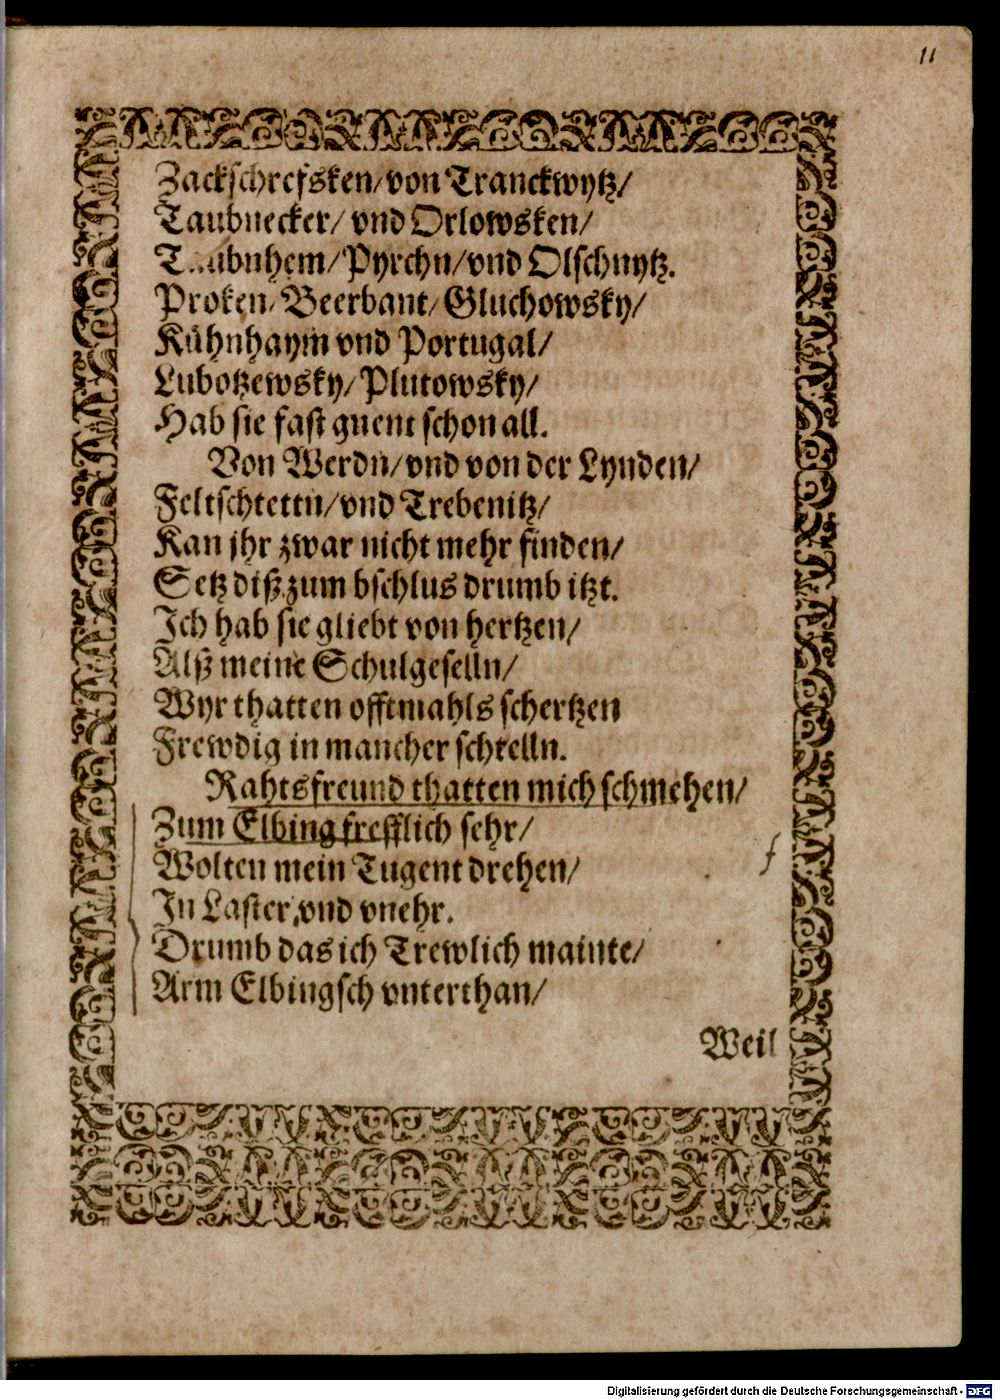 11
Zackschrefsken/von Tranckwytz/
Taubnecker/ vnd Orlowsken/
Pyrchn/vnd Olschnytz.
Proken/ Beerbant/ Gluchowsky/
Kühnhaym vnd Portugal/
Lubotzewsky/ Plutowsky/
Hab sie fast gnent schon all.
Von Werdn/vnd von der Lynden/
Feltschtettn/vnd Trebenitz/
Kan jhr zwar nicht mehr finden/
Setz diß zum bschlus drumb itzt.
Ich hab sie gliebt von hertzen/
Alß meine Schulgeselln/
Wyr thatten offtmahls schertzen
Frewdig in mancher schtelln.
Rahtsfreund thatten mich schmehen/
Zum Elbing trefflich sehr/
Wolten mein Tugent drehen/
In Laster,vnd vnehr.
Drumb das ich Trewlich mainte/
Arm Elbingsch vnterthan/
Weil
Digitalisierung gefördert durch die Deutsche Forschungsgemeinschaft - DFG